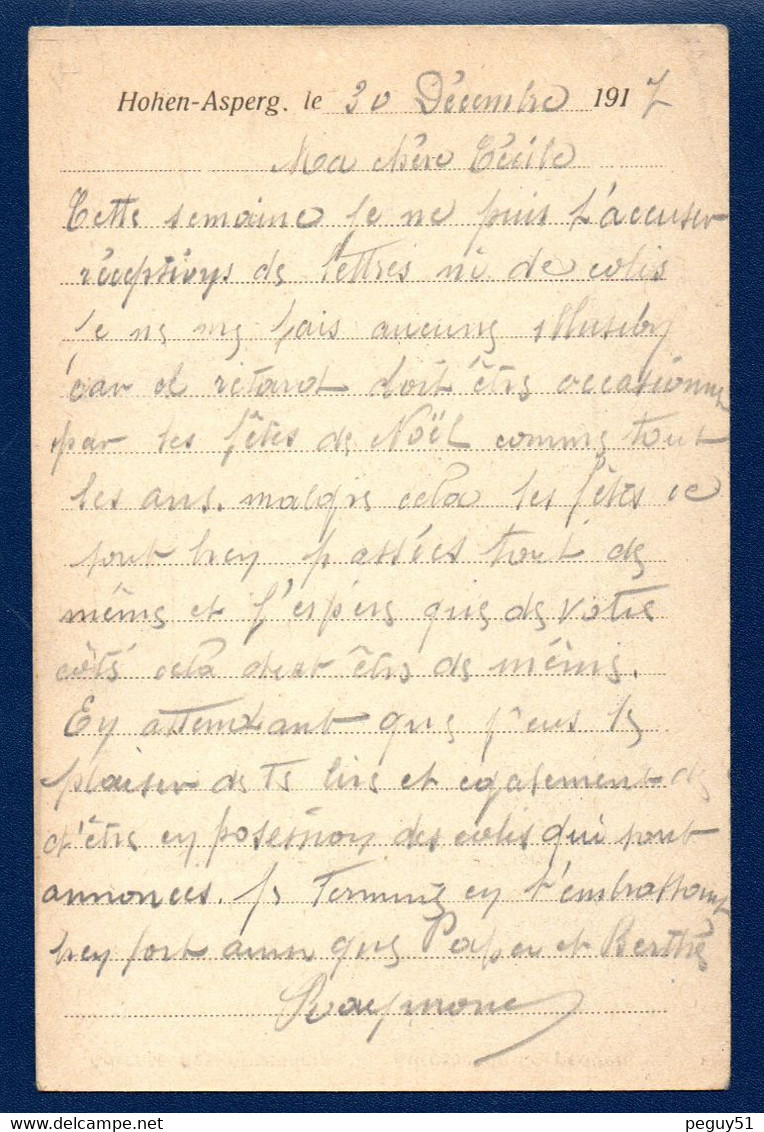 Hohen-Asperg, le 30 Décembre 1917
Ma chère Cécile
Cette semaine je ne puis t'accuser
réceptions de lettres ni de colis
je ne me fais aucune illusion
car ce retard doit être occasionné
par les fêtes de Noël comme tout
les ans. malgré cela les fêtes ce
sont bien passées tout de
même et j'espère que de votre
côté cela doit être de même.
En attendant que j'eus le
plaisir de te lire et egalement de
d'être en possession des colis qui sont
annonces. je termine en t'embrassant
bien fort ainsi que Papa et Berthe
Raymond
peguy51